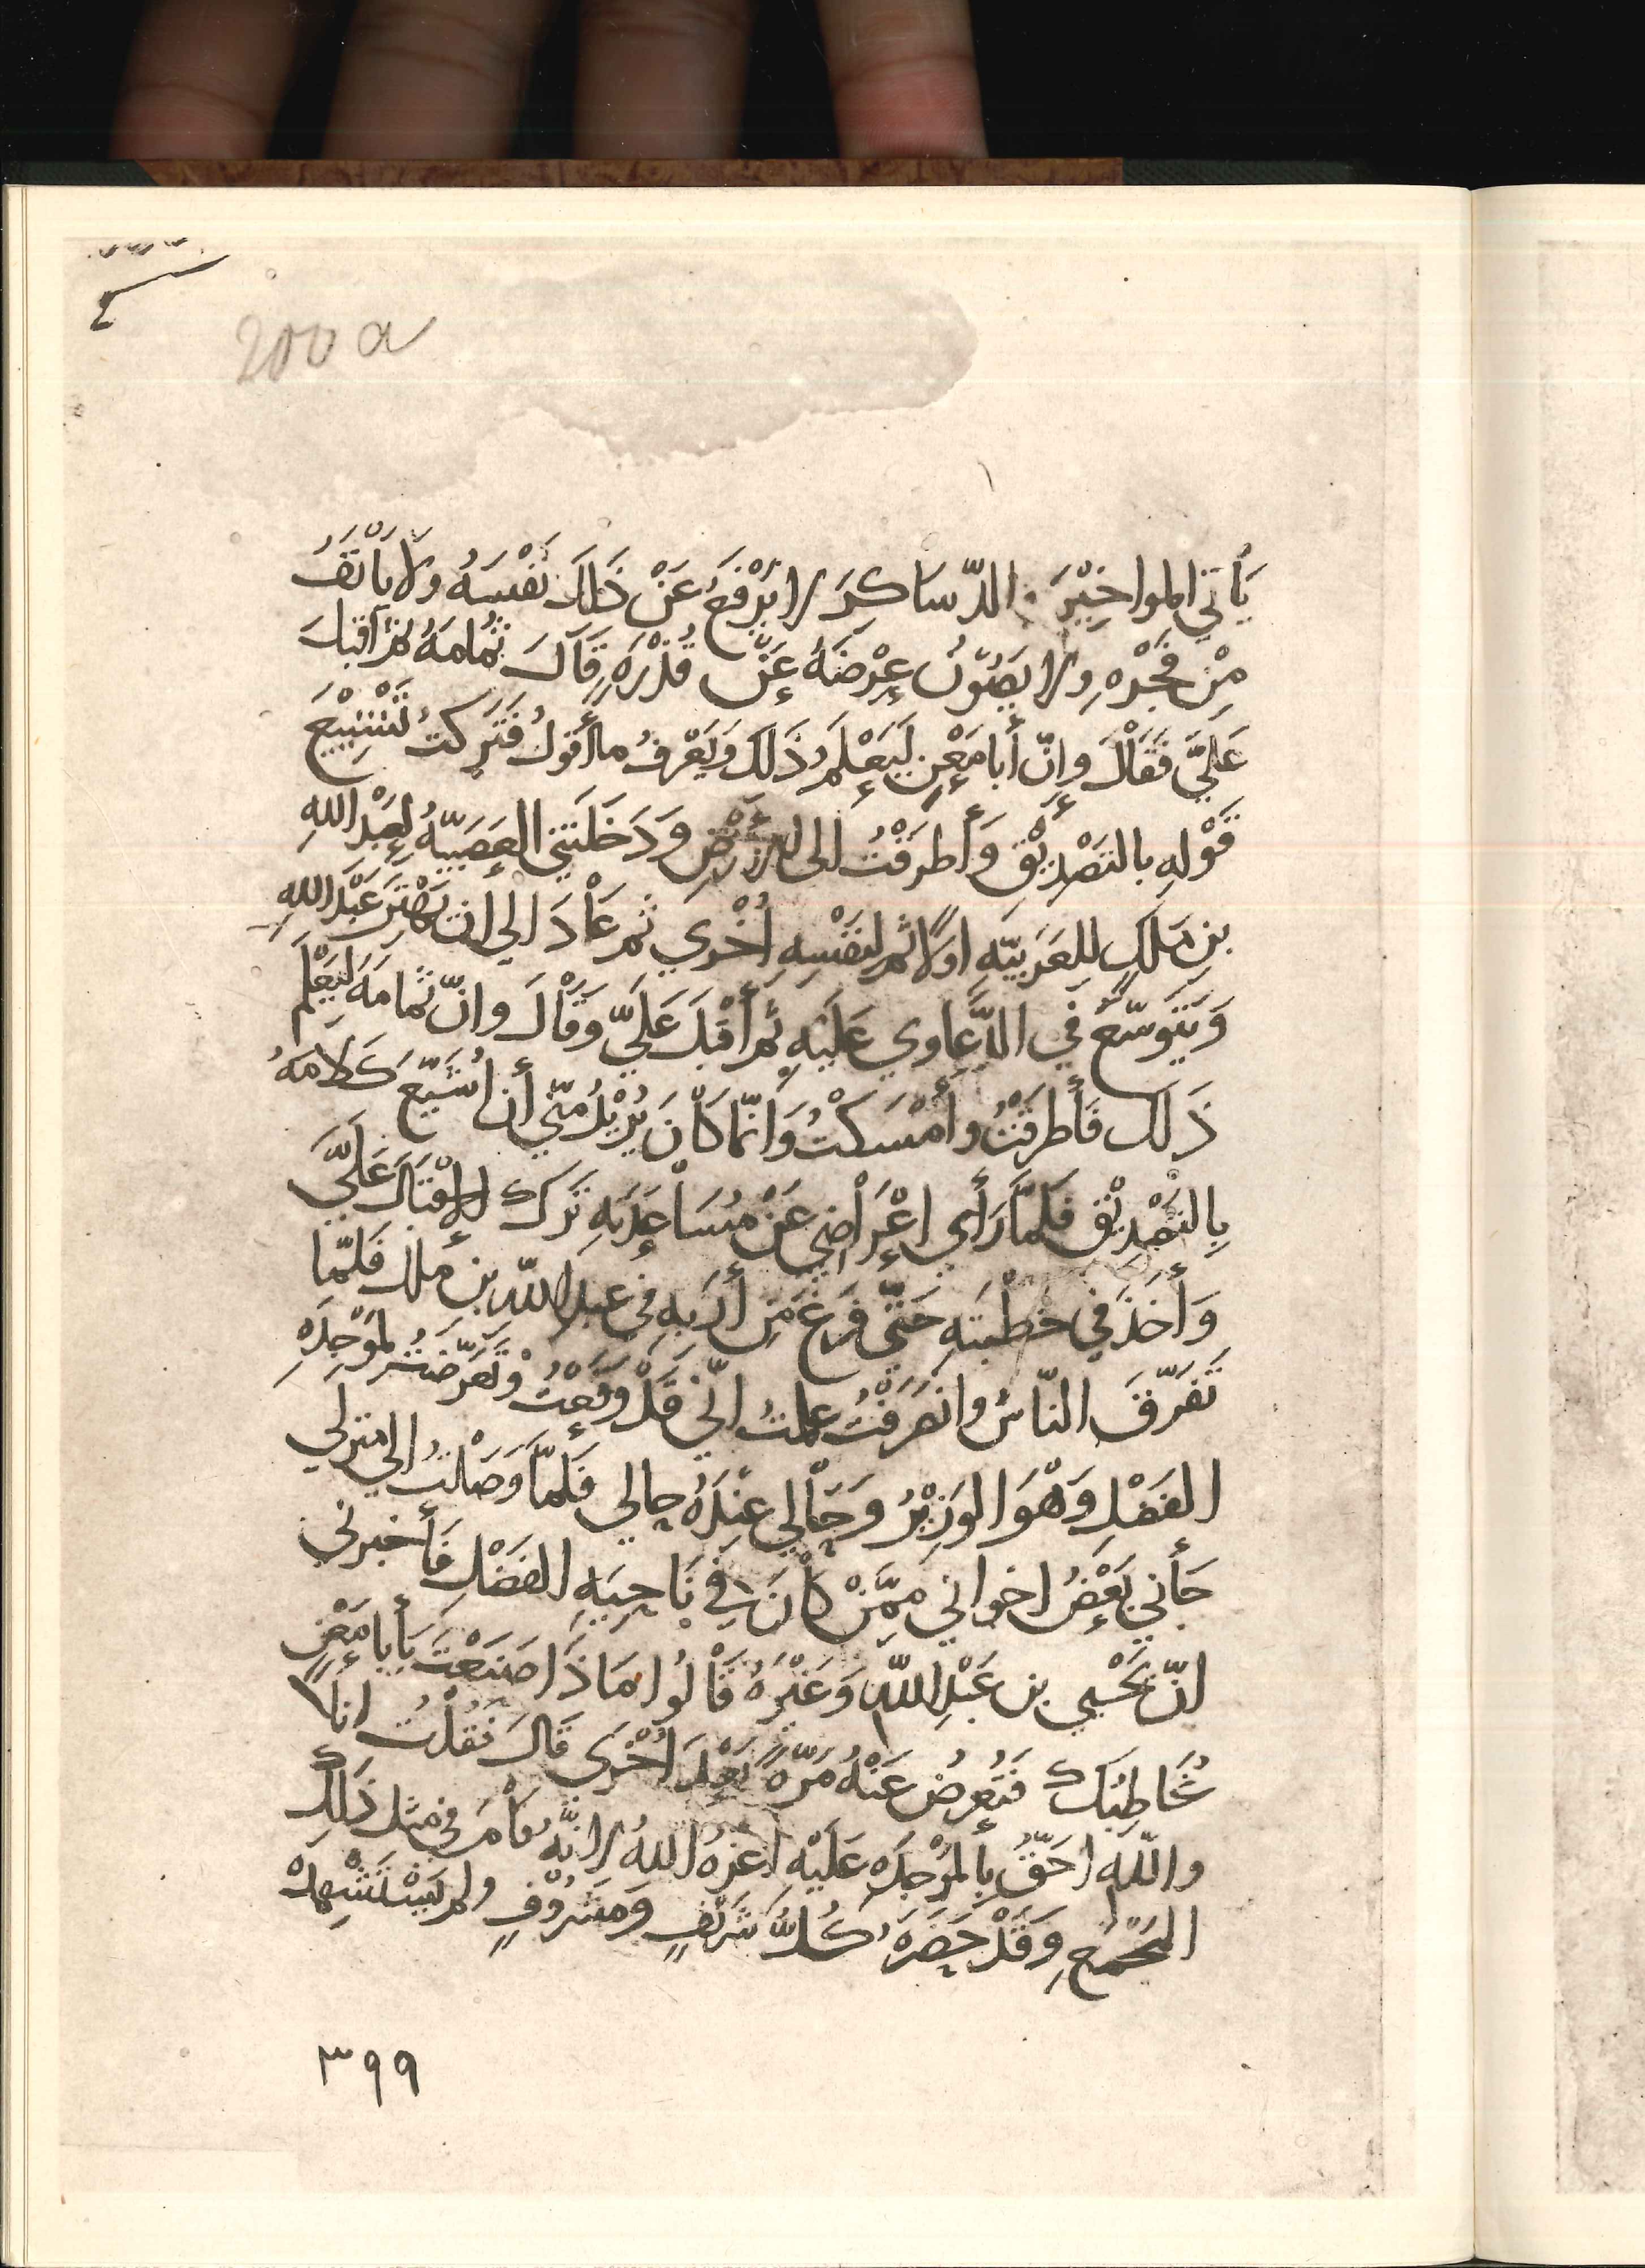 200 a
يَأتي المواخِيْرَ والدّسَاكِرَ لا يَرْفَعُ عَنْ ذَلِكَ نَفْسَهُ ولا يَأنَفُ
مِنْ فُجْرِهِ ولا يَصُوْنُ عِرْضَهُ عَنْ قُذْرِهِ قَالَ ثُمامَةُ ثم أقبَلَ
عَلَيَّ فَقَالَ وإنّ أبا مَعْنٍ لَيَعْلَمُ ذَلكَ وَيَعْرفُ ما أقولُ فَتَركتُ تَشْيِيْعَ
قَوْلهِ بالتَصْدِيْقِ وَأطرَقْتُ إلى الأرْضِ وَدَخَلَتني العَصَبيّةُ لِعَبْدِ اللهِ
بنِ مَلكٍ لِلعَرَبيّهِ اولًا ثم لِنَفْسِهِ اُخْري ثم عَاْدَ الي ان يَهْتِرَ عَبْدَ اللهِ
وَيَتَوسّعُ في الدَّعاوي عَلَيهِ ثم أقْبَلَ عَلَيَّ وَقَاْلَ وانّ ثُمامَهَ لَيَعْلَم
ذَلكَ فأطرَقْتُ وأمْسَكْتُ وَانّما كَاْنَ يُرِيْدُ مِنّي أن اُشَيّعَ كَلامَهُ
بِالتَصْدِيْقِ فلَمّا رَأي اِعْرَاْضِي عَنْ مُسَاْعَدَتِهِ تَرَكَ الإقْبَالَ عَلَيَّ
وَأخَذَ في خُطْبَتِهِ حَتّى فَرَغَ مِن أرَبِهِ في عبدِ اللّهِ بن ملك فلَمّا
تَفَرّقَ النّاسُ وانصَرَفْتُ علمتُ انّي قَدْ وقَعْتُ وتَعَرّضتُ لمَوْجِدَهِ
الفَضْلِ وَهْوَ الوَزِيْرُ وَحَاْلي عِنْدَهُ حالي فلَمّا وَصَلْتُ الى منزلي
جَأني بَعْضُ اخواني مِمّنْ كاْنَ في نَاْحِيَهِ الفَضْلِ فأخبرني
انّ يَحْيي بن عَبْدِ اللّهِ وَغَيْرَهُ قَاْلُوا مَا ذَا صَنَعْتَ يَأبا مَعْنٍ
يُخَاطِبُكَ فَتُعرِضُ عَنْهُ مَرّةً بَعْدَ اُخْرَي قَالَ فَقُلْتُ انا
واللّهِ احَقُّ بِالمَوْجِدَه عَلَيْهِ أعَزّهُ اللهُ لانّهُ قَاْمَ في مِثْلِ ذَلِكَ
المَجْمَعِ وَقَدْ حَضَرَهُ كُلُّ شَرِيْفٍ وَمَشْرُوْفٍ ولم يَسْتَشْهِدْ
٣٩٩